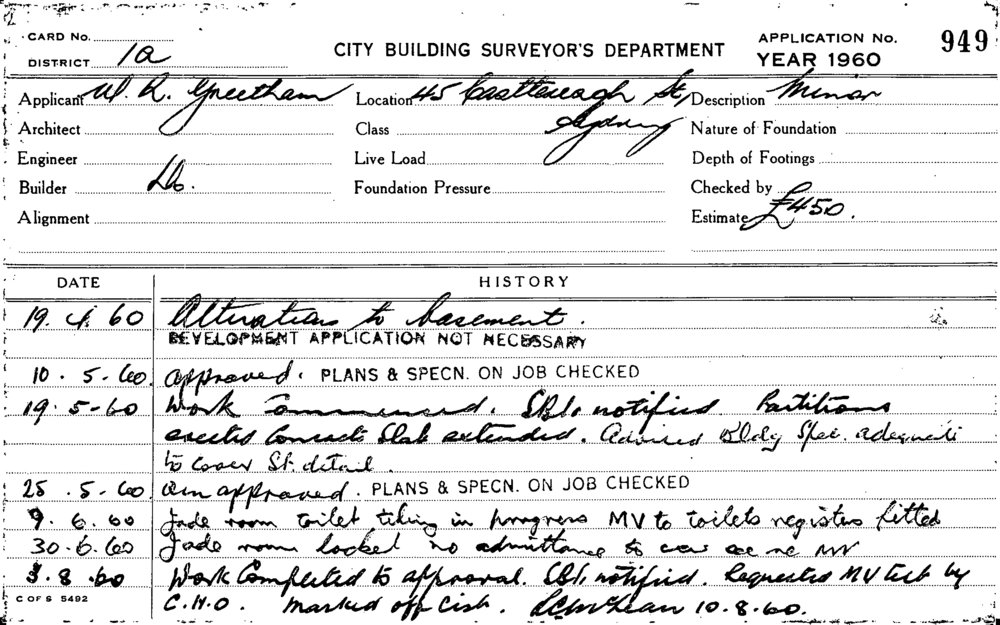 CARD No.
DISTRICT 1a
CITY BUILDING SURVEYOR'S DEPARTMENT
APPLICATION No. 949
YEAR 1960
Applicant W. R. Greetham
Location 45 Castlereagh St, Sydney
Description Minor
Architect
Class
Nature of Foundation
Engineer
Live Load
Depth of Footings
Builder Do.
Foundation Pressure
Checked by
Alignment
Estimate £450.
DATE HISTORY
19. 4. 60 Alterations to basement.
DEVELOPMENT APPLICATION NOT NECESSARY
10. 5. 60. approved. PLANS & SPECN. ON JOB CHECKED
19. 5-60 Work Commenced. notified Partitions
erected Concrete Slab extended. Advised Bldg Spec. adequate
to cover St. detail.
25. 5-60 approved. PLANS & SPECN. ON JOB CHECKED
9. 6. 60 Jade room toilet tiling in progress MV to toilets registers fitted
30. 6. 60 Jade room locked no admittance to
3. 8. 60 Work Completed to approval. notified. Requested MV test by
C OF S 5492
C.H.O. Marked off 10.8.60.